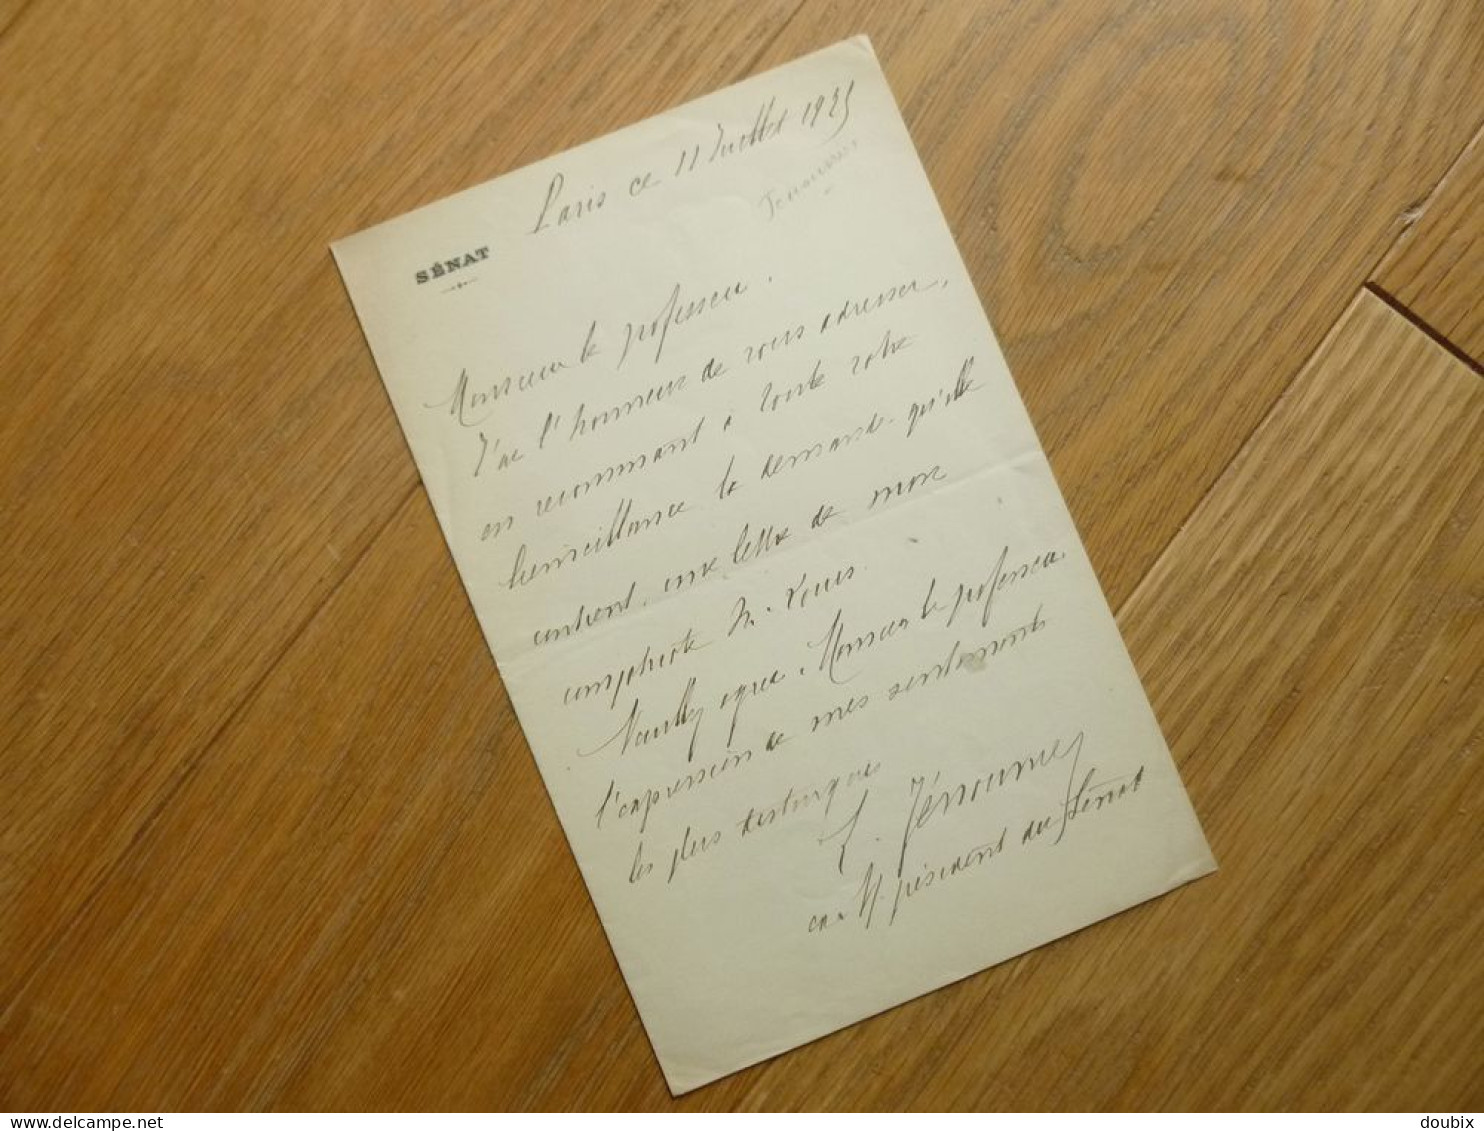 Paris ce 11 Juillet 1925
SÉNAT
Monsieur le professeur.
J'ai l'honneur de vous adresser,
en recommant à toute votre
bienveillance la demande qu'elle
contient, une lettre de mon
compatriote M. Louis.
Veuillez agréer, Monsieur le professeur.
l'expression de mes sentiments
les plus distingués
T. Jénouvrier
V. président du Sénat
delcampe.net
doubix